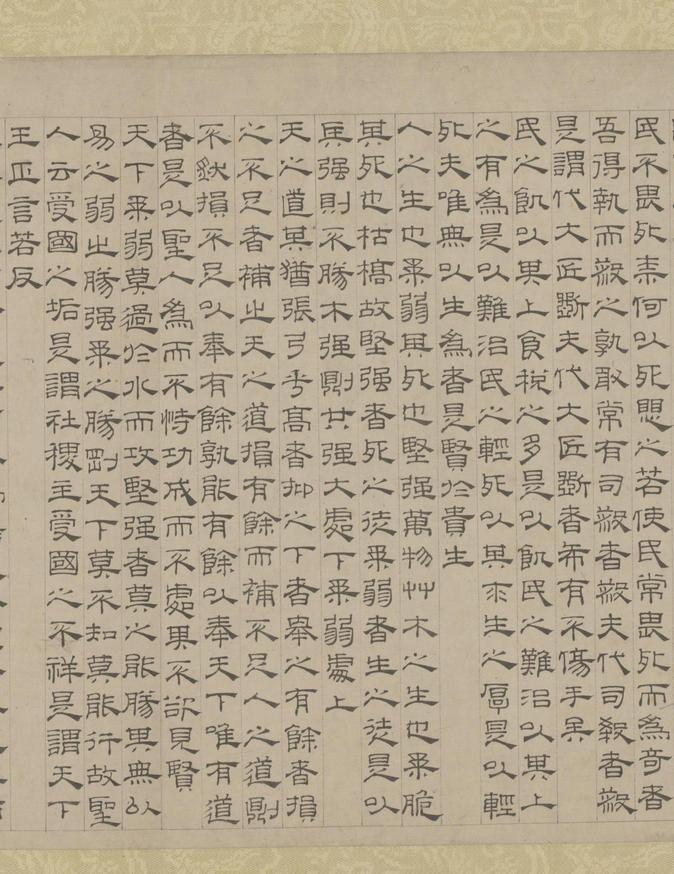 民不畏死柰何以死愳之若使民常畏死而為奇者
吾得執而殺之孰敢常有司殺者殺夫代司殺者殺
是謂代大匠斲夫代大匠斲者希有不傷手矣
民之飢以其上食稅之多是以飢民之難治以其上
之有為是以難治民之輕死以其求生之厚是以輕
死夫唯無以生為者是賢於貴生
人之生也柔弱其死也堅强萬物艸木之生也柔脆
其死也枯槁故堅强者死之徒柔弱者生之徒是以
兵强則不勝木强則共强大處下柔弱處上
天之道其猶張弓乎高者抑之下者舉之有餘者損
之不足者補之天之道損有餘而補不足人之道則
不然損不足以奉有餘孰能有餘以奉天下唯有道
者是以聖人為而不恃功成而不處其不欲見賢
天下柔弱莫過於水而攻堅强者莫之能勝其無以
易之弱之勝强柔之勝剛天下莫不知莫能行故聖
人云受國之垢是謂社稷主受國之不祥是謂天下
王正言若反